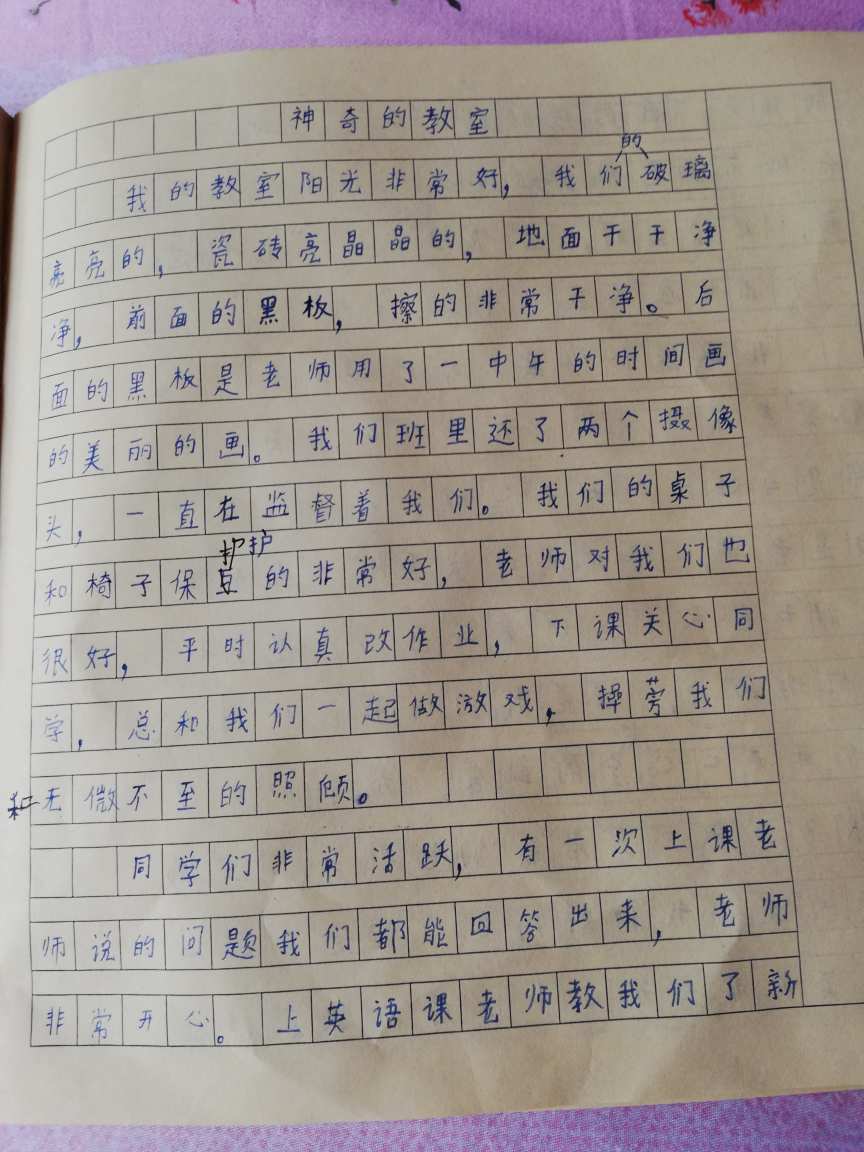 神奇的教室
我的教室阳光非常好，我们的破璃
亮亮的，瓷砖亮晶晶的，地面干干净
净，前面的黑板，擦的非常干净。后
面的黑板是老师用了一中午的时间画
的美丽的画。我们班里还了两个摄像
头，一直在监督着我们。我们的桌子
和椅子保护的非常好，老师对我们也
很好，平时认真改作业，下课关心同
学，总和我们一起做游戏，操劳我们
和无微不至的照顾。
同学们非常活跃，有一次上课老
师说的问题我们都能回答出来，老师
非常开心。上英语课老师教我们了新